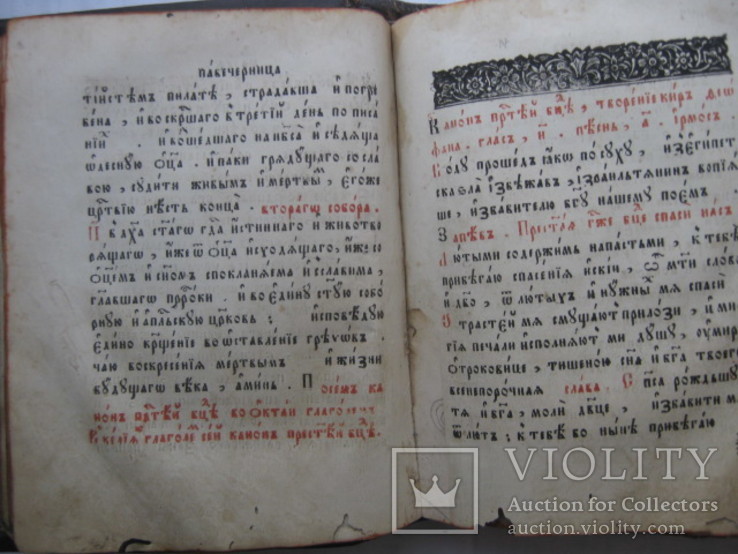 павечерница
тійстѣмъ пилатѣ, страдавша и҆ погре
бена, и҆ воскр҃шаго в̾ третій день по писа
нїй и҆ вошедшаго на нб҃са и҆ сѣдѧща
ѡ҆деснꙋю ѻ҆ц҃а. и҆ паки грѧдꙋщаго со сла
вою, сꙋдити живымъ и҆ мертвымъ, є҆гоже
црт҃вїю нѣсть конца. втораго собора.
И҆ в̾ дх҃а ст҃аго гд҇а и҆стиннаго и҆ животво
рѧщаго, и҆же ѿ ѻ҆ц҃а и҆сходѧщаго, и҆же со
ѻ҆ц҃емъ и҆ сн҃омъ спокланѧема и҆ сславима,
глаголавшаго пррⷪ҇ки. и҆ во є҆динꙋ ст҃ꙋю собо
рнꙋю и҆ апⷭ҇льскꙋю црковь: и҆сповѣдꙋю
є҆дино крщ҃енїе во ѡ҆ставленїе грѣховъ.
чаю воскресенїѧ мертвымъ и҆ жизни
бꙋдꙋщаго вѣка, аминь. По семъ ка
нонъ прт҃ѣй бц҃ѣ во ѻ҆ктаи
глаголемъ сей канонъ престѣй бц҃ѣ.
Канонъ прт҃ѣй бц҃ѣ, творенїе киръ ѳеѡ
фана. гласъ, и҃. пѣснь, а҃. і҆рмосъ.
Водꙋ прошедъ ꙗ҆ко по сꙋхꙋ, и҆ є҆гипет
ска ѕла и҆збѣжавъ, і҆зраильтѧнинъ вопїѧ
ше, и҆збавителю бг҃ꙋ нашемꙋ поемъ.
Запѣвъ. Прест҃аѧ гж҃е бц҃е спаси насъ
Лютыми содержимъ напастьми, к̾ тебѣ
прибѣгаю спасенїѧ и҆скїй, ѽ мт҃и слова
и҆ дв҃о, ѿ лютыхъ и҆ нꙋжныхъ мѧ спаси
Страстей мѧ смꙋщаютъ прилози, и҆ мно
гїѧ печали и҆сполнѧютъ ми дꙋшꙋ, ᲂу҆мири
ѻ҆троковице, тишеною сн҃а и҆ бг҃а твоего
всенепорочнаѧ слава. Сп҃са рождьшꙋ
тѧ и҆ бг҃а, моли дв҃це, и҆збавити м
к̾ тебѣ бо нынѣ прибѣгаю
VIOLITY
Auction for Collectors
auction.violity.com